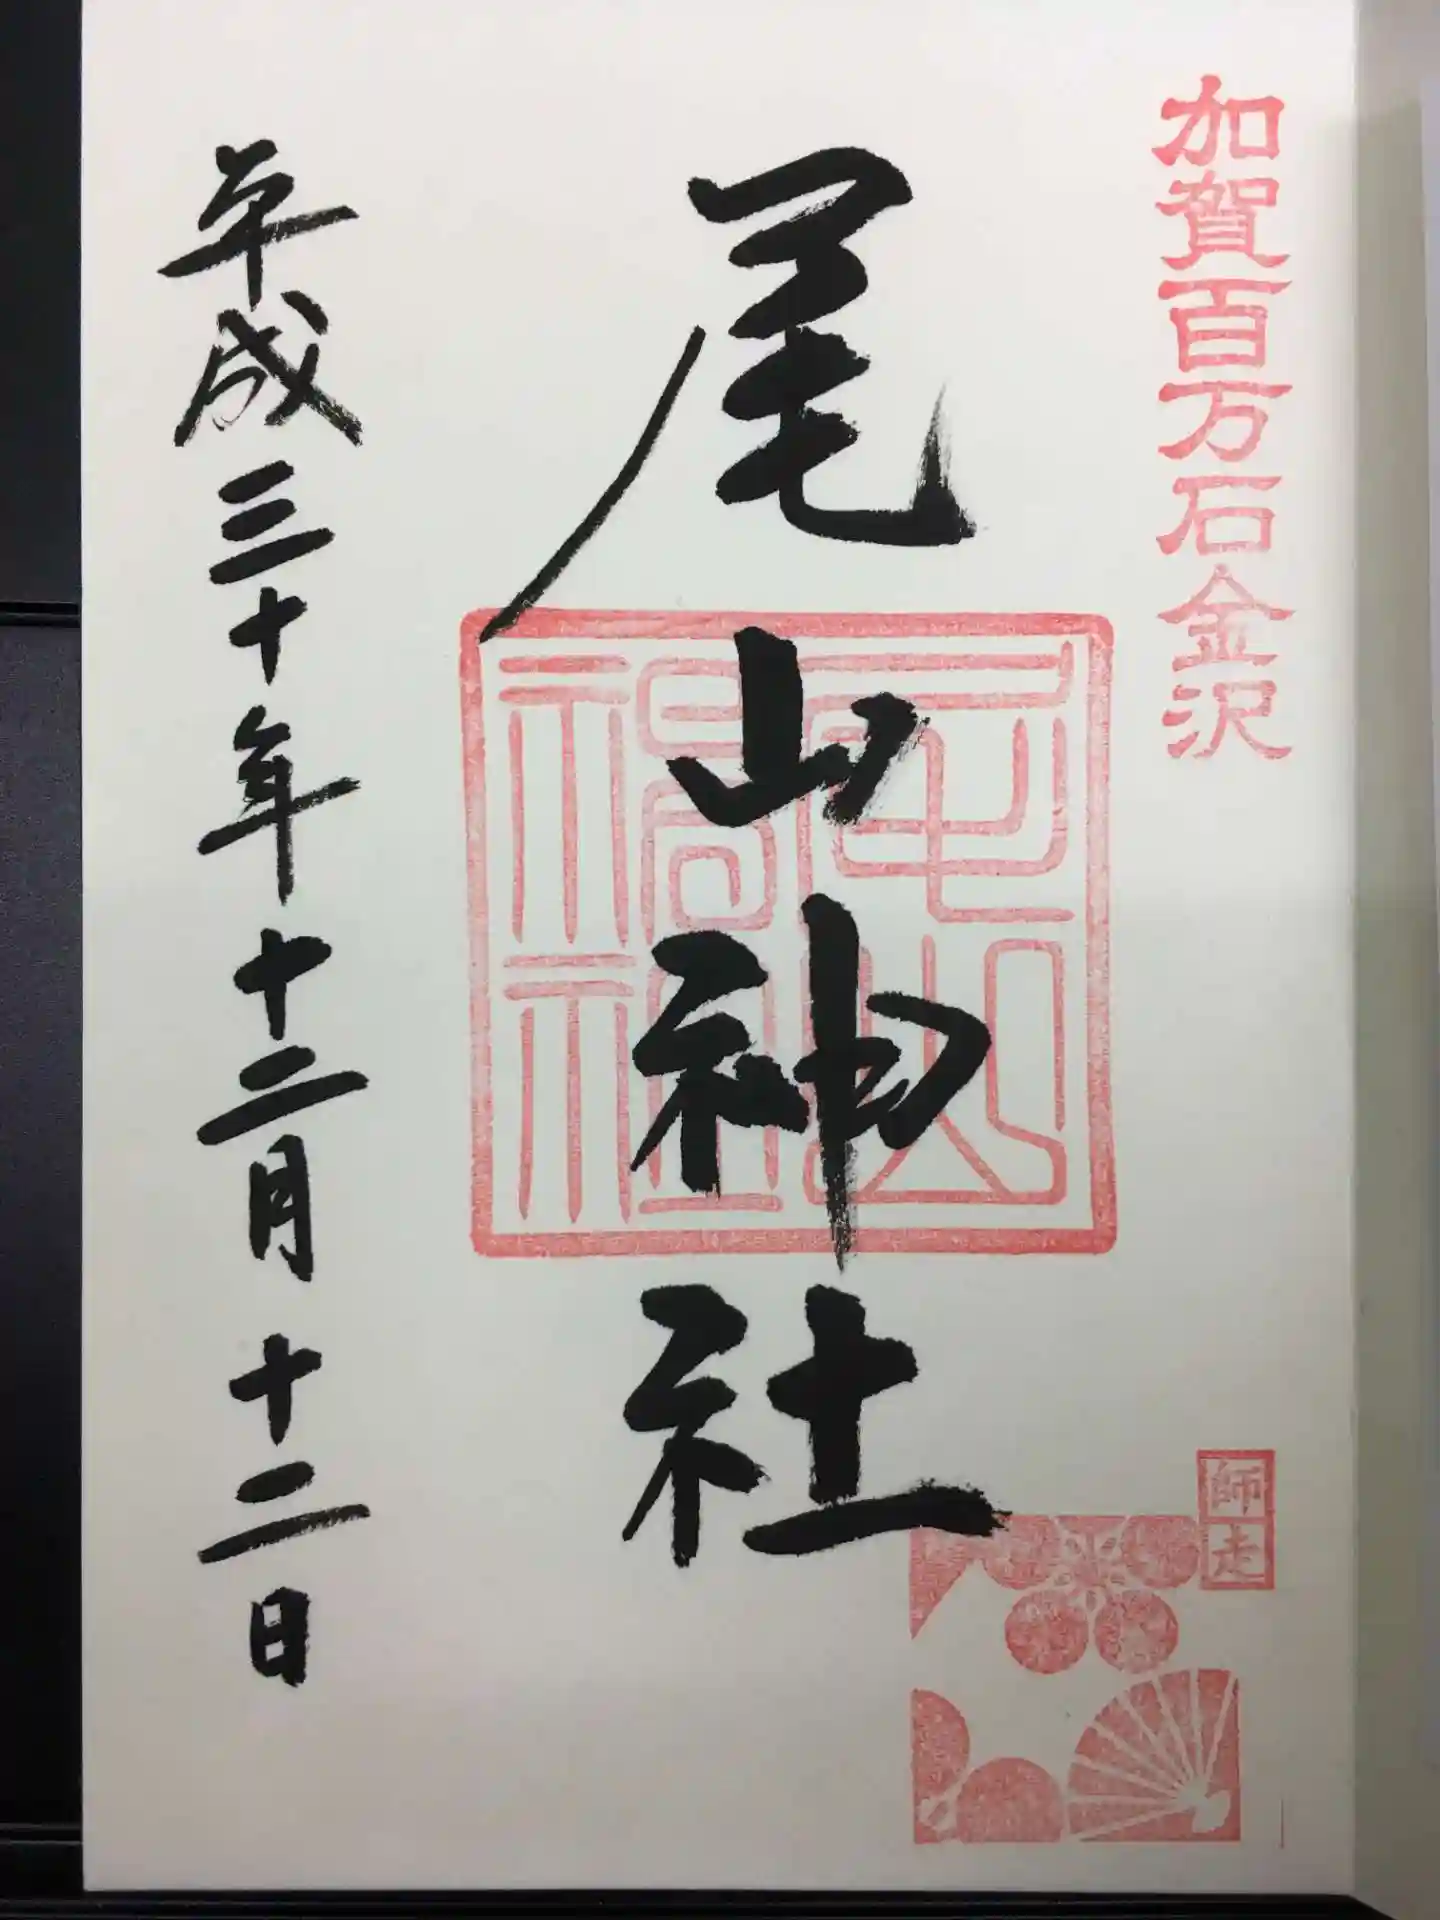 加賀百万石金沢
尾山神社
尾山神社
師走
平成三十年十二月十二日